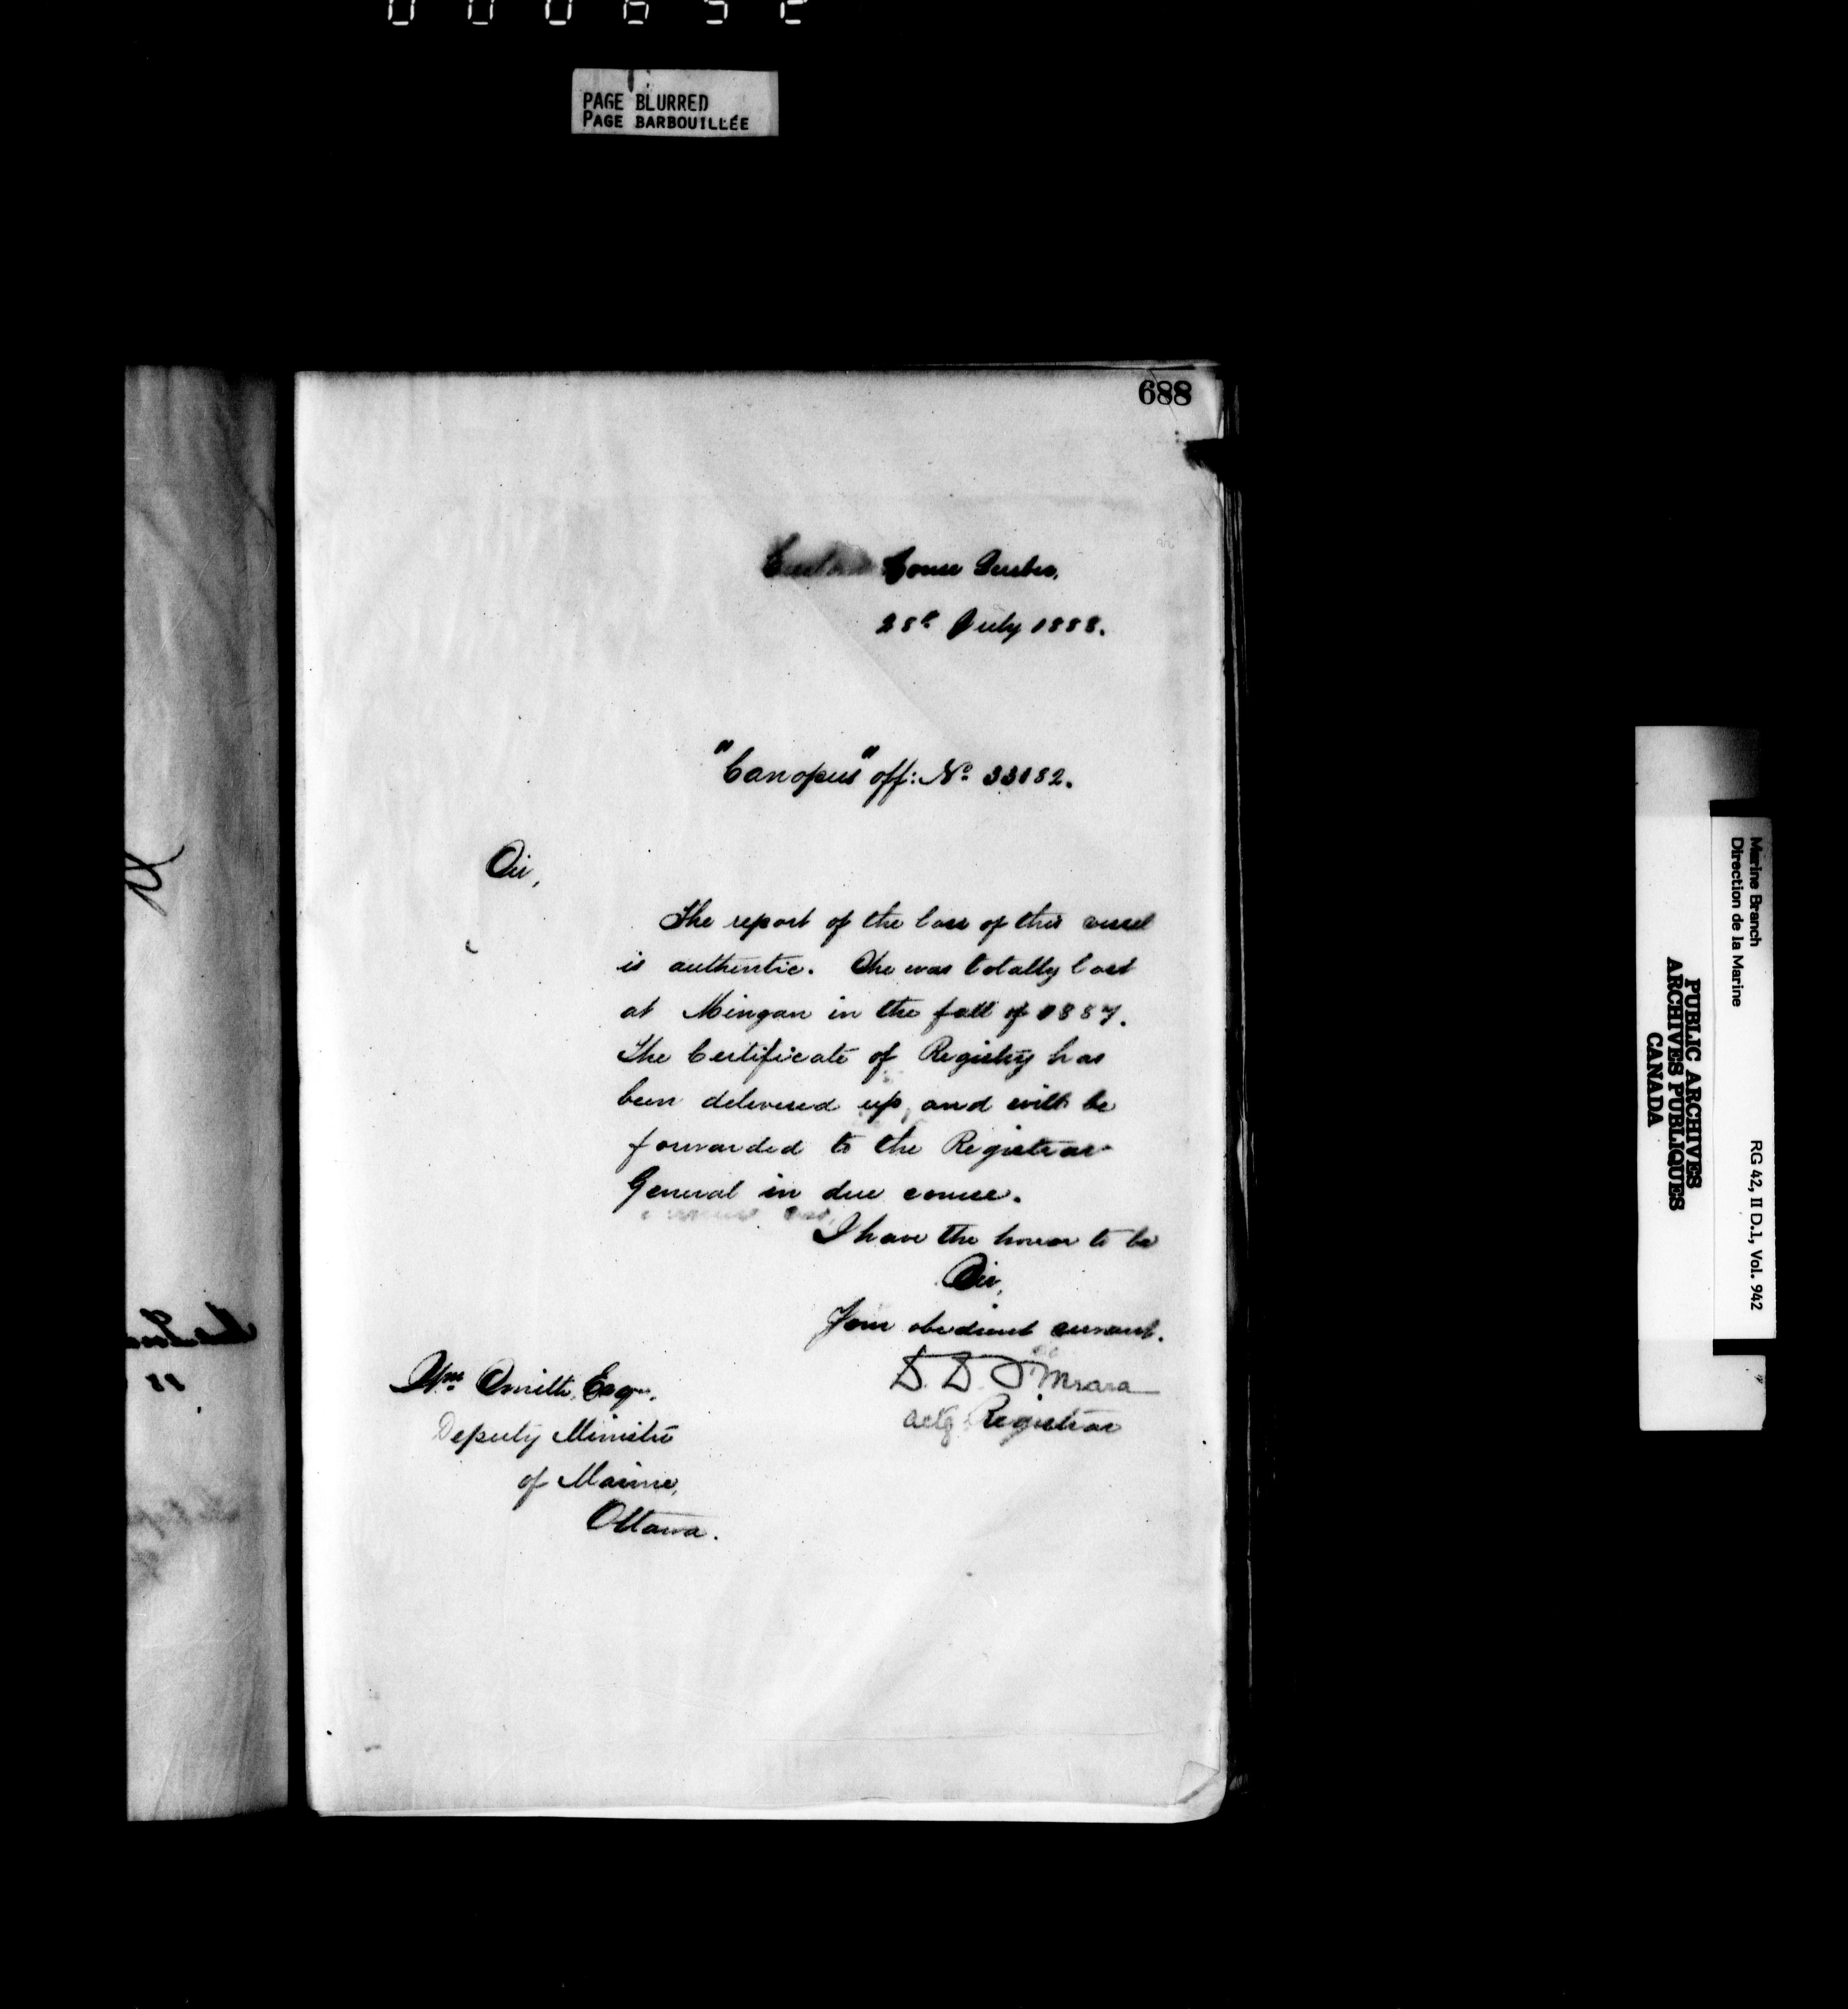 PAGE BLURRED
PAGE BARBOUILLÉE
688
Custom House Quebec,
28th July 1888.
"Canopus" off: No 33182.
Sir,
The report of the loss of this vessel
is authentic. She was totally lost
at Mingan in the fall of 1887.
The Certificate of Registry has
been delivered up, and will be
forwarded to the Registrar
General in due course.
I have the honor to be
Sir,
Your obedient servant.
D. D. O'Meara
actg Registrar
Wm Smith, Esqr.
Deputy Minister
of Marine,
Ottawa.
Marine Branch
Direction de la Marine
RG 42, II D.1, Vol. 942
PUBLIC ARCHIVES
ARCHIVES PUBLIQUES
CANADA